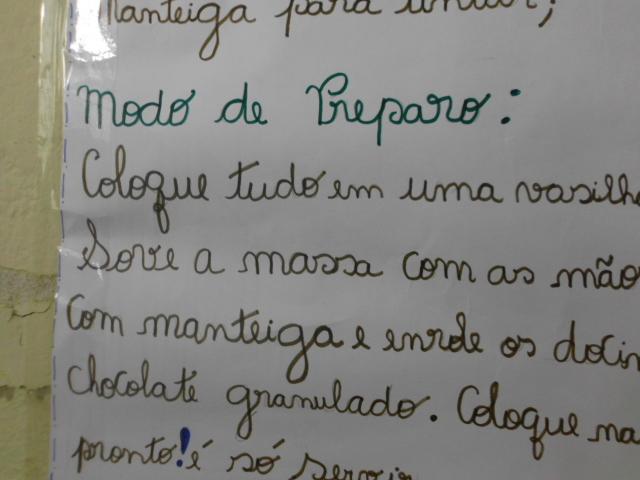 manteiga para untar;
Modo de Preparo:
Coloque tudo em uma vasilha
Sove a massa com as mão
com manteiga e enrole os docin
chocolate granulado. Coloque na
pronto! é só servir